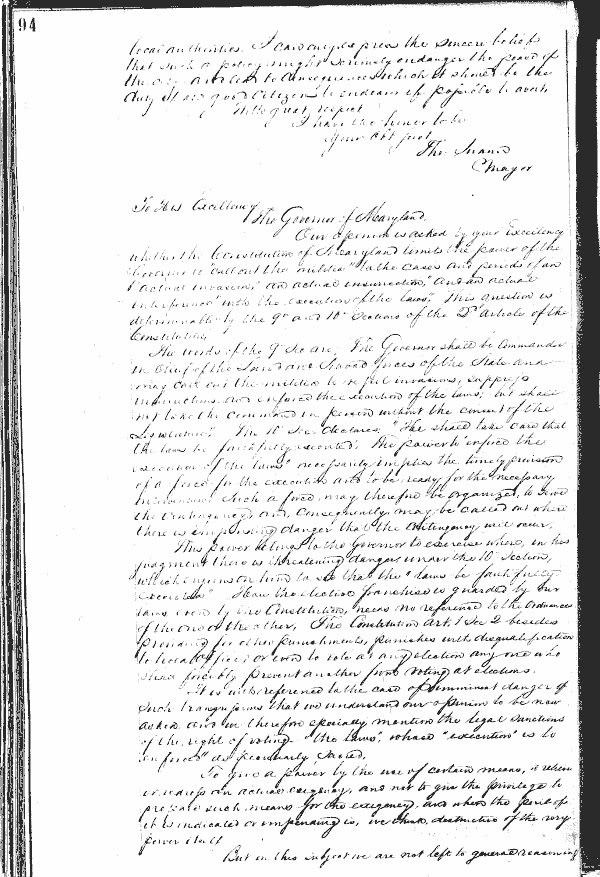 94
local authorities. I can only express the sincere belief
that such a policy might seriously endanger the peace of
the city and lead to consequences which it should be the
duty of all good citizens to endeavor if possible to avert.
With great respect
I have the honor to be
Your Obt Servt
Tho. Swann
Mayor
To His Excellency
The Governor of Maryland.
Our opinion is asked by your Excellency
whether the Constitution of Maryland limits the power of the
Governor to call out the militia "to the cases and periods of an
"actual invasion," an actual insurrection," and an actual
interference" with the execution of the laws". This question is
determinable by the 9th and 10th Sections of the 2d Article of the
Constitution.
The words of the 9th Sec are, "The Governor shall be Commander
in Chief of the Land and Naval forces of the State and
may call out the militia to repel invasions, suppress
insurrections and enforce the execution of the laws; but shall
not take the command in person without the consent of the
Legislature". The 10th Sec. declares, "He shall take care that
the laws be faithfully executed". The power to "enforce the
execution of the laws" necessarily implies the timely provision
of a force for the execution and to be ready for the necessary
Such a force may therefore be organized, to serve
the contingency and, consequently, may be called out where
there is impending danger that the contingency will occur.
This power belongs to the Governor to exercise where, in his
judgment there is threatening danger under the 10th Section,
which enjoins on him to see that the "laws be faithfully
executed". How the elective franchise is guarded by our
laws, even by our Constitution, needs no reference to the Ordinances
of the one or the other. The Constitution Art. 1 Sec 2 besides
providing for other punishments, punishes with disqualification
to hold office, or even to vote at any election any one who
shall forcibly prevent another from voting at elections.
It is with reference to the case of imminent danger of
such transgressions that we understand our opinion to be now
asked and we therefore specially mention the legal sanctions
of the right of voting. "the laws", whose "execution" is to
enforced" as peculiarly sacred.
To give a power by the use of certain means, to
redress an actual exigency, and not to give the privilege to
prepare such means for the exigency, and when the peril of
it is indicated or impending is, we think, destruction of the very
power itself.
But on this subject we are not left to general reasoning